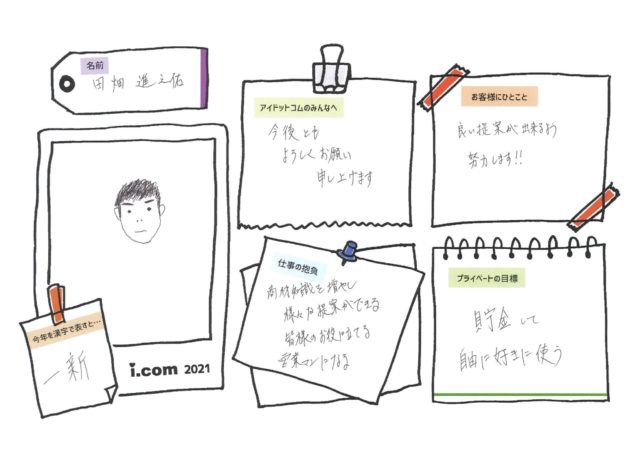 名前
田畑 進之佑
アイドットコムのみんなへ
今後とも
よろしくお願い
申し上げます
お客様にひとこと
良い提案が出来るよう
努力します!!
今年を漢字で表すと…
一新
i.com 2021
仕事の抱負
商材知識を増やし
様々な提案ができる
皆様のお役に立てる
営業マンになる
プライベートの目標
貯金して
自由に好きに使う